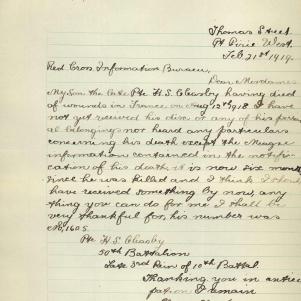 Thomas Street
Pt Pirie West.
Feb 21st 1919.
Red Cross Information Bureau,
Dear Mesdames
My Son the late Pte H.S. Cleasby having died
of wounds in France on Aug 12th 1918 I have
not yet received his disc or any of his person
al belongings nor heard any particulars
concerning his death except the Meagre
information contained in the notifi-
cation of his death, it is now six months
since he was killed and I think I should
have received something by now, any
thing you can do for me I shall be
very thankful for, his number was
No, 1605.
Pte H.S. Cleasby
50th Battalion
late 3rd Rein of 10th Battal.
Thanking you in antici
pation I remain